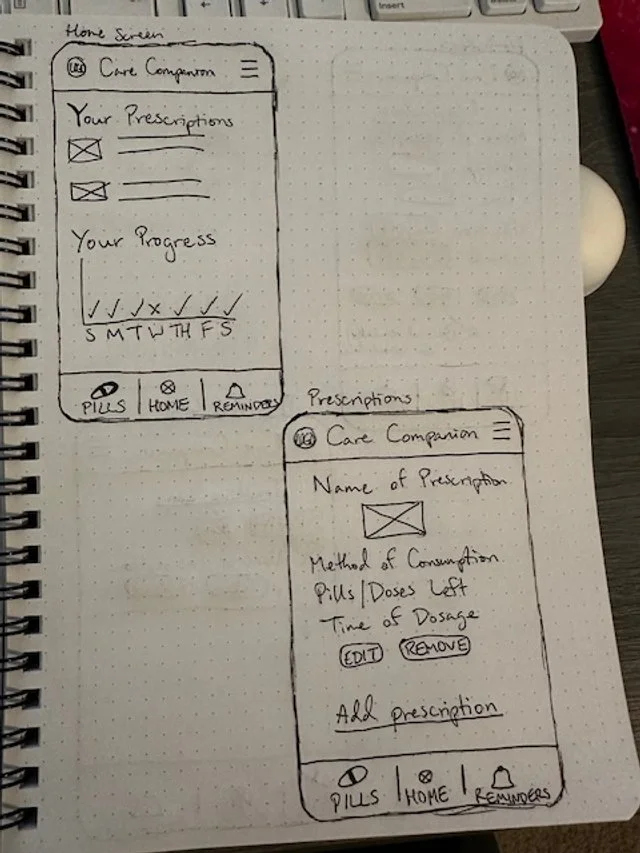 Insert
Home Screen
Care Companion
Your Prescriptions
Your Progress
S M T W TH F S
PILLS | HOME | REMINDERS
Prescriptions
Care Companion
Name of Prescription
Method of Consumption
Pills/Doses Left
Time of Dosage
EDIT REMOVE
Add prescription
PILLS | HOME | REMINDERS